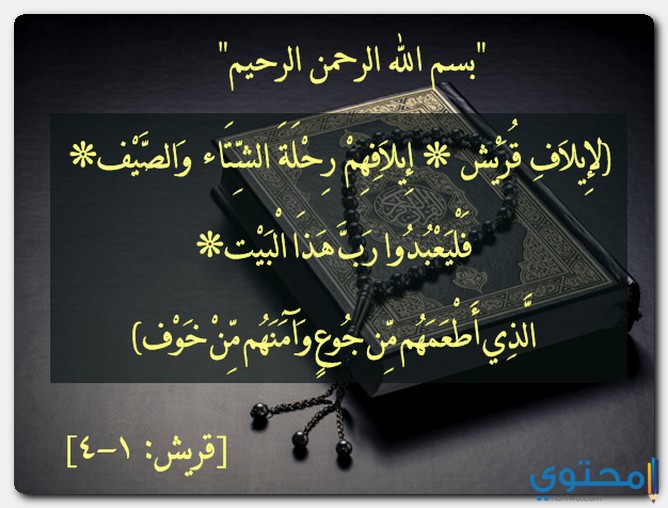 "بسم الله الرحمن الرحيم"
(لِإِيلاَفِ قُرَيْش * إِيلاَفِهِمْ رِحْلَةَ الشِّتَاء وَالصَّيْف*
فَلْيَعْبُدُوا رَبَّ هَذَا الْبَيْت*
الَّذِي أَطْعَمَهُم مِّن جُوعٍ وَآمَنَهُم مِّنْ خَوْف)
[قريش: ١-٤]
محتوي